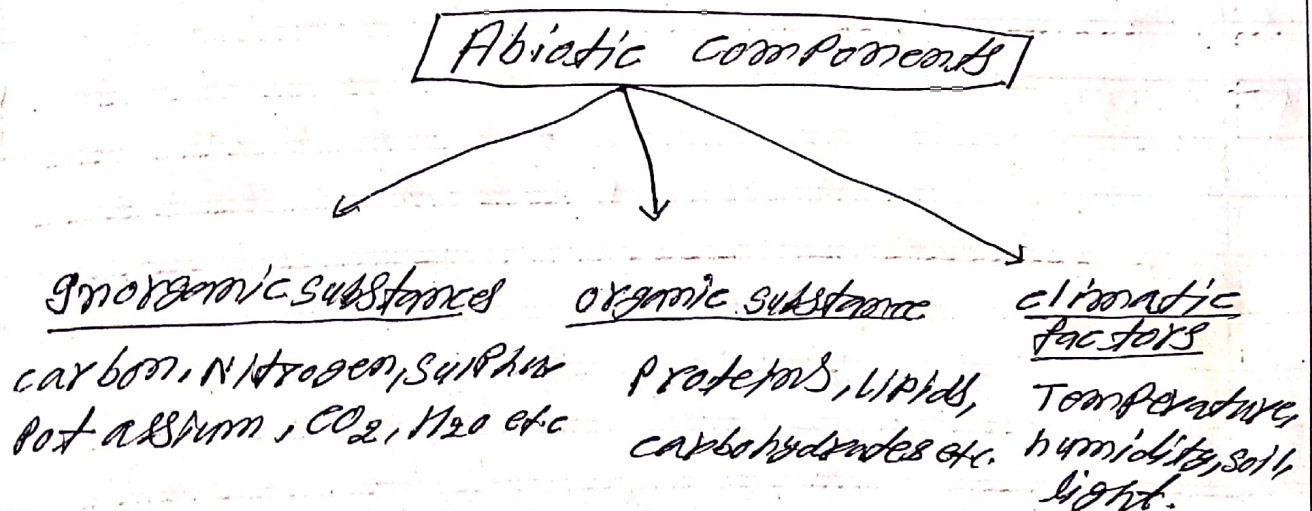 Abiotic components
Inorganic substances
carbon, Nitrogen, sulphur
potassium, CO2, H2O etc
organic substance
Proteins, Lipids,
carbohydrates etc.
climatic
factors
Temperature,
humidity, soil,
light.